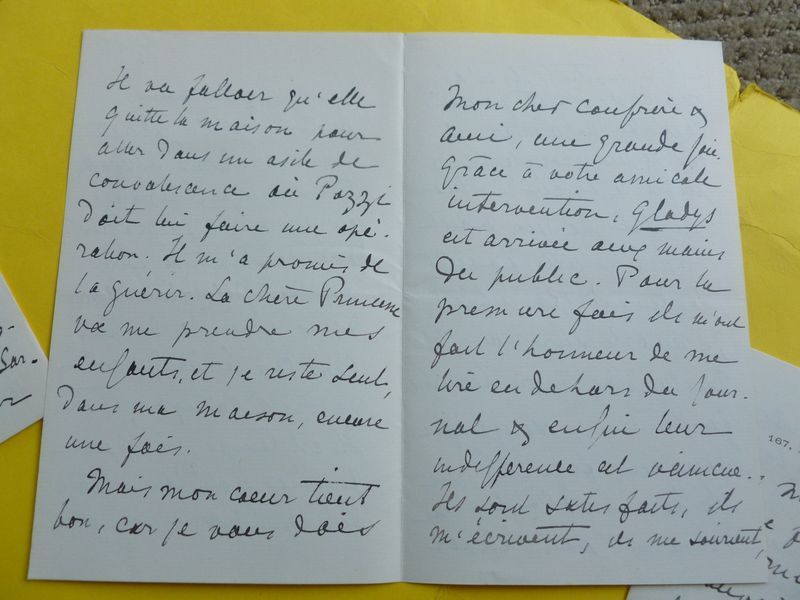 Il va falloir qu'elle
quitte la maison pour
aller dans un asile de
convalescence où Pozzi
doit lui faire une opé-
ration. Il m'a promis de
la guérir. La chère Princesse
va me prendre mes
enfants, et je reste seul,
dans ma maison, encore
une fois.
Mais mon cœur tient
bon, car je vous dois
Mon cher confrère &
ami, une grande joie.
Grâce à votre amicale
intervention, Gladys
est arrivée aux mains
du public. Pour la
première fois ils m'ont
fait l'honneur de me
lire en dehors du jour-
nal & enfin leur
indifférence est vaincue.
Ils sont satisfaits, ils
m'écrivent, ils me
167.